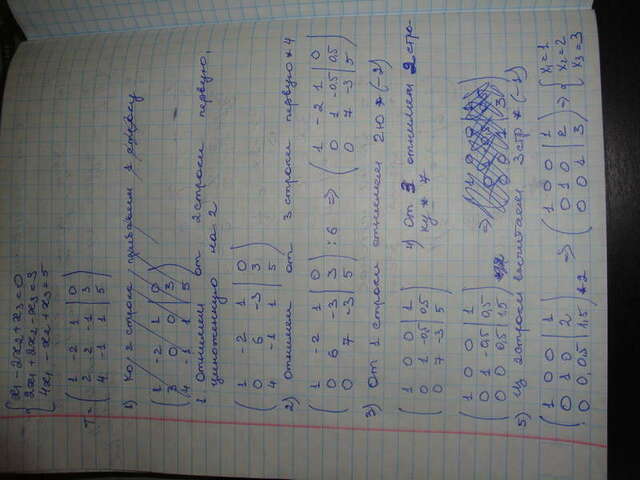 { x₁ - 2x₂ + x₃ = 0
2x₁ + 2x₂ - x₃ = 3
4x₁ - x₂ + x₃ = 5
T = ( 1 -2 1 | 0
2 2 -1 | 3
4 -1 1 | 5 )
1) Ко 2 строке прибавим 1 строку
( 1 -2 1 | 0
3 0 0 | 3
4 -1 1 | 5 )
1 Отнимем от 2 строки первую,
умноженную на 2
( 1 -2 1 | 0
0 6 -3 | 3
4 -1 1 | 5 )
2) Отнимаем от 3 строки первую * 4
( 1 -2 1 | 0
0 6 -3 | 3
0 7 -3 | 5 ) : 6 => ( 1 -2 1 | 0
0 1 -0,5 | 0,5
0 7 -3 | 5 )
3) От 1 строки отнимаем 2ю * (-2)
( 1 0 0 | 1
0 1 -0,5 | 0,5
0 7 -3 | 5 )
4) От 3 отнимаем 2 стро-
ку * 7
( 1 0 0 | 1
0 1 -0,5 | 0,5
0 0 0,5 | 1,5 ) =>
5) Из 2 строки вычитаем 3 стр * (-1)
( 1 0 0 | 1
0 1 0 | 2
0 0 0,5 | 1,5 ) * 2 => ( 1 0 0 | 1
0 1 0 | 2
0 0 1 | 3 ) => { x₁ = 1
x₂ = 2
x₃ = 3